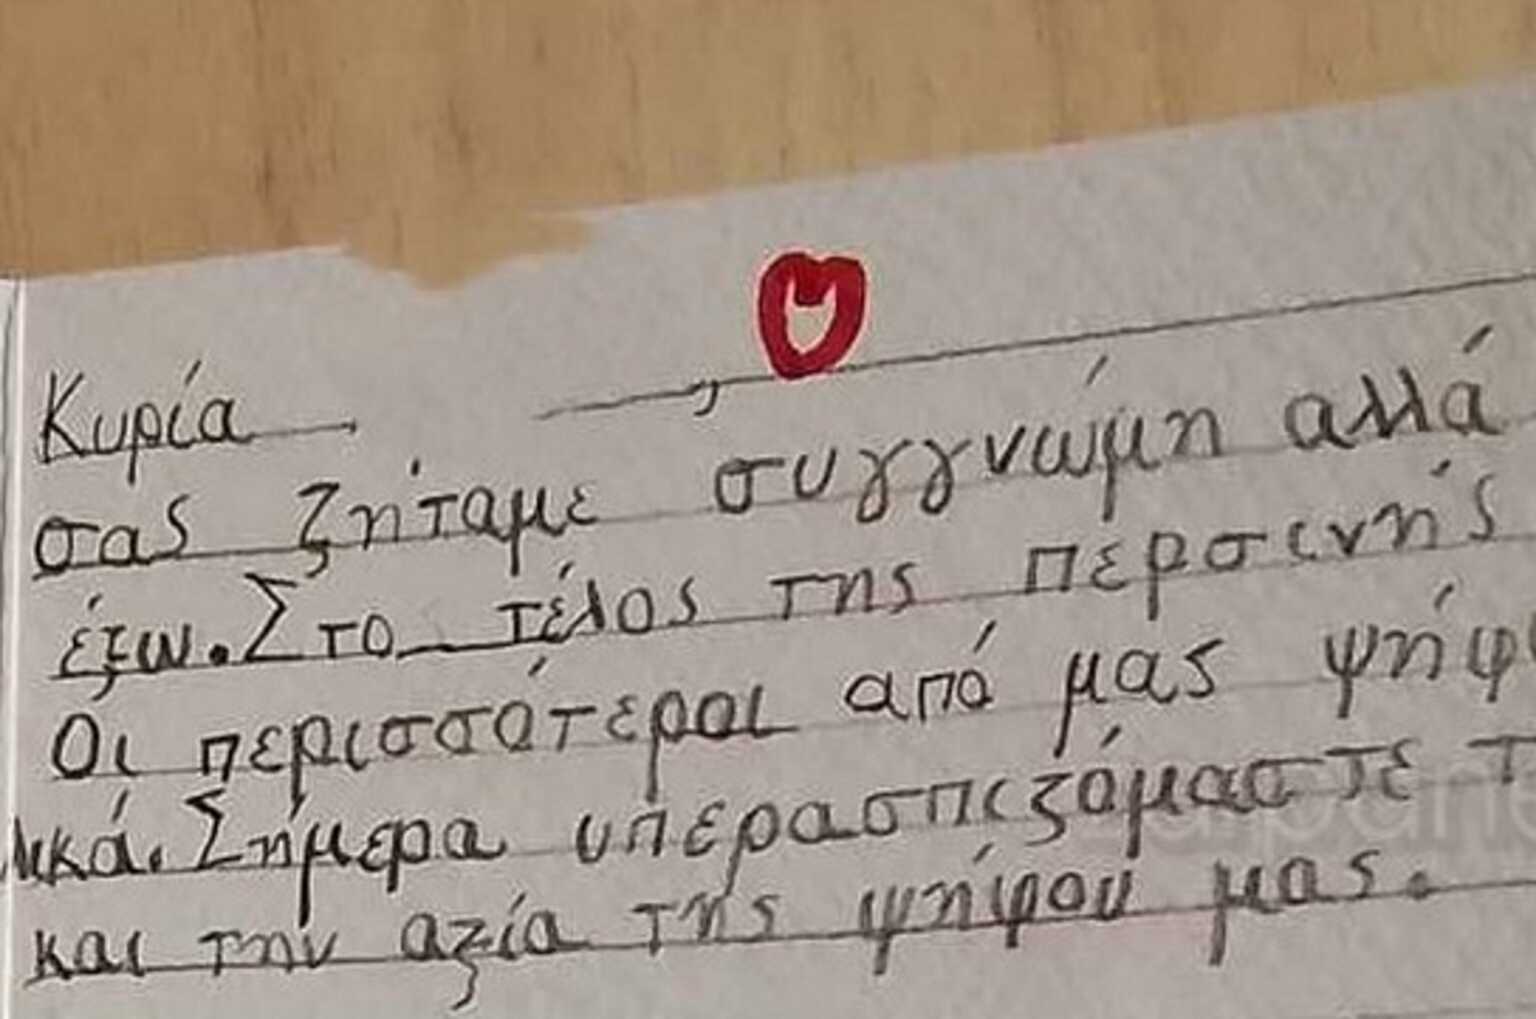 Κυρία ,
σας ζήταμε συγγνώμη αλλά
έξω. Στο τέλος της περσινής
Οι περισσότεροι από μας
Σήμερα υπερασπιζόμαστε
και την αξία της ψήφου μας.